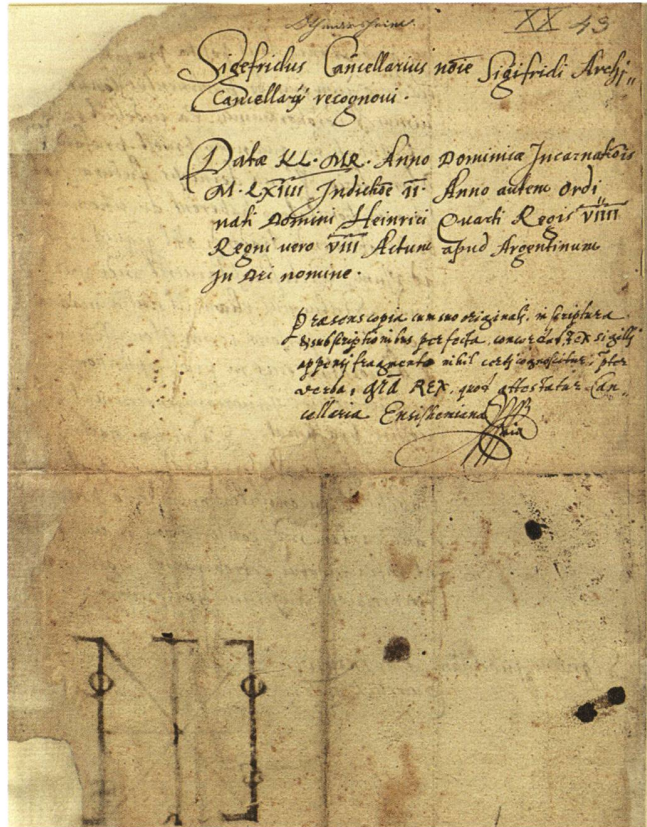 XX 43
Sigefridus Cancellarius nōie Sigifridi Archi„
Cancellarÿ recognoui.
Datæ KL. MR. Anno Dominicæ Incarnatiōis
M. LXIIII Indictiōe II. Anno autem Ordi
nati Domini Heinrici Quarti Regis VIIII
Regni uero VIII Actum apud Argentinum
In Dei nomine.
Præsens copia cum suo originali, in scriptura
& subscriptionibus perfecta, concordat, ex sigilli
appensi fragmento nihil certi cognoscitur, p̄ter
verba, GR̄A REX, quod attestatur Can„
cellaria Ensishemiana